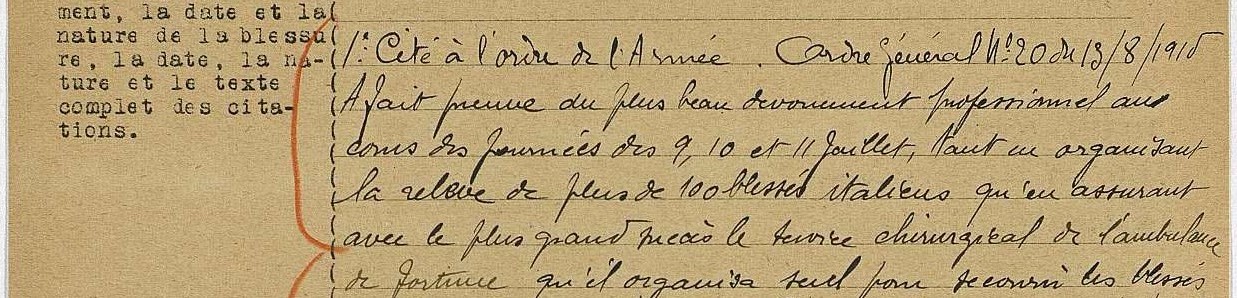 ment, la date et la(
nature de la blessu(
re, la date, la na-(
ture et le texte
complet des cita-
tions.
1º. Cité à l'ordre de l'Armée. Ordre Général Nº 20 du 13/8/1915
A fait preuve du plus beau dévouement professionnel au
cours des journées des 9, 10 et 11 Juillet, tant en organisant
la relève de plus de 100 blessés italiens qu'en assurant
avec le plus grand succès le service chirurgical de l'ambulance
de fortune qu'il organisa seul pour secourir les blessés